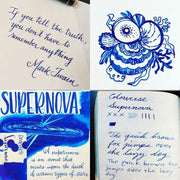 If you tell the truth,
you don't have to
remember anything
Mark Twain
SUPERNOVA
A supernova
is an event that
occurs upon the death
of certain types of stars
Colorverse
Supernova
xxx
The quick brown
fox jumps over
the lazy dog
The quick brown fox
jumps over the lazy
dog